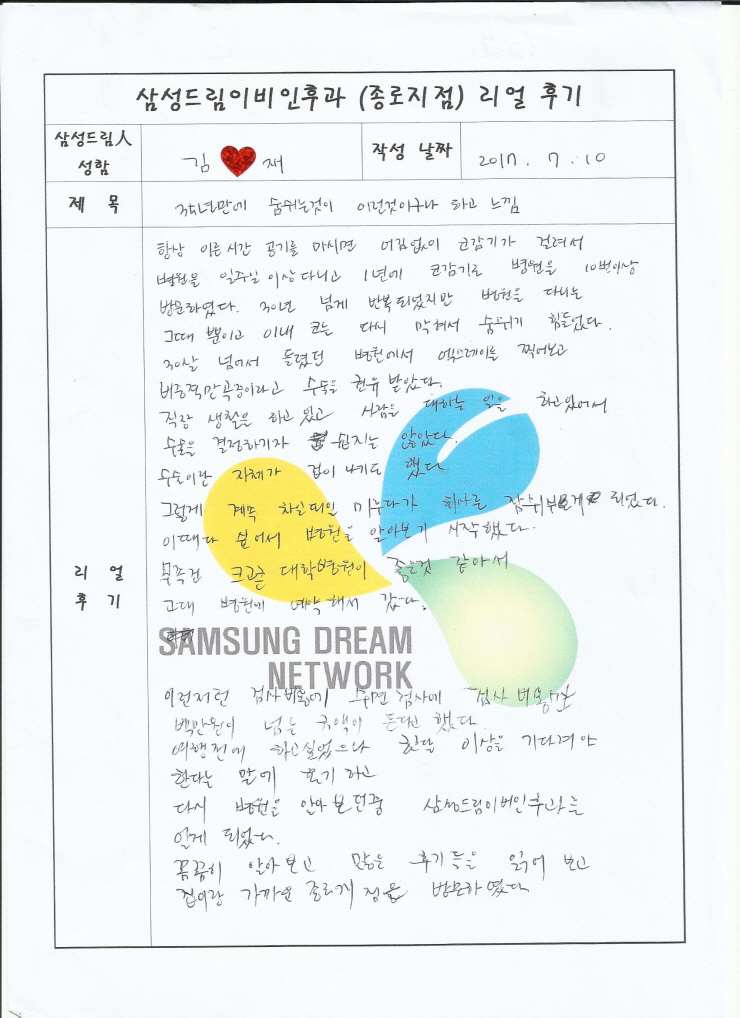 삼성드림이비인후과 (종로지점) 리얼 후기
삼성드림人
성함
김 ♥ 재
작성 날짜
2017. 7. 10
제 목
35년만에 숨쉬는것이 이런것이구나 하고 느낌
리 얼
후 기
항상 이른시간 공기를 마시면 어김없이 코감기가 걸려서
병원을 일주일이상 다니고 1년에 코감기로 병원을 10번이상
방문하였다. 30년 넘게 반복되었지만 병원을 다니는
그때 뿐이고 이내 코는 다시 막혀서 숨쉬기 힘들었다.
30살 넘어서 들렸던 병원에서 엑스레이를 찍어보고
비중격만곡증이라고 수술을 권유 받았다.
직장 생활을 하고 있고 사람을 대하는 일을 하고있어서
수술을 결정하기자 쉽지는 않았다.
수술이란 자체가 겁이 나기도 했다.
그렇게 계속 차일피일 미루다가 회사를 잠시 쉬게 되었다.
이때다 싶어서 병원을 알아보기 시작했다.
무조건 크고큰 대학병원이 좋을것 같아서
고대 병원에 예약해서 갔다.
SAMSUNG DREAM
NETWORK
이런저런 검사비용에 수면검사에 검사비용만
백만원이 넘는 금액이 든다고 했다.
여행전에 하고싶었으나 한달 이상을 기다려야
한다는 말에 포기 하고
다시 병원을 알아보던중 삼성드림이비인후과를
알게 되었다.
꼼꼼히 알아보고 많은 후기들을 읽어 보고
집이랑 가까운 종로지점을 방문하였다